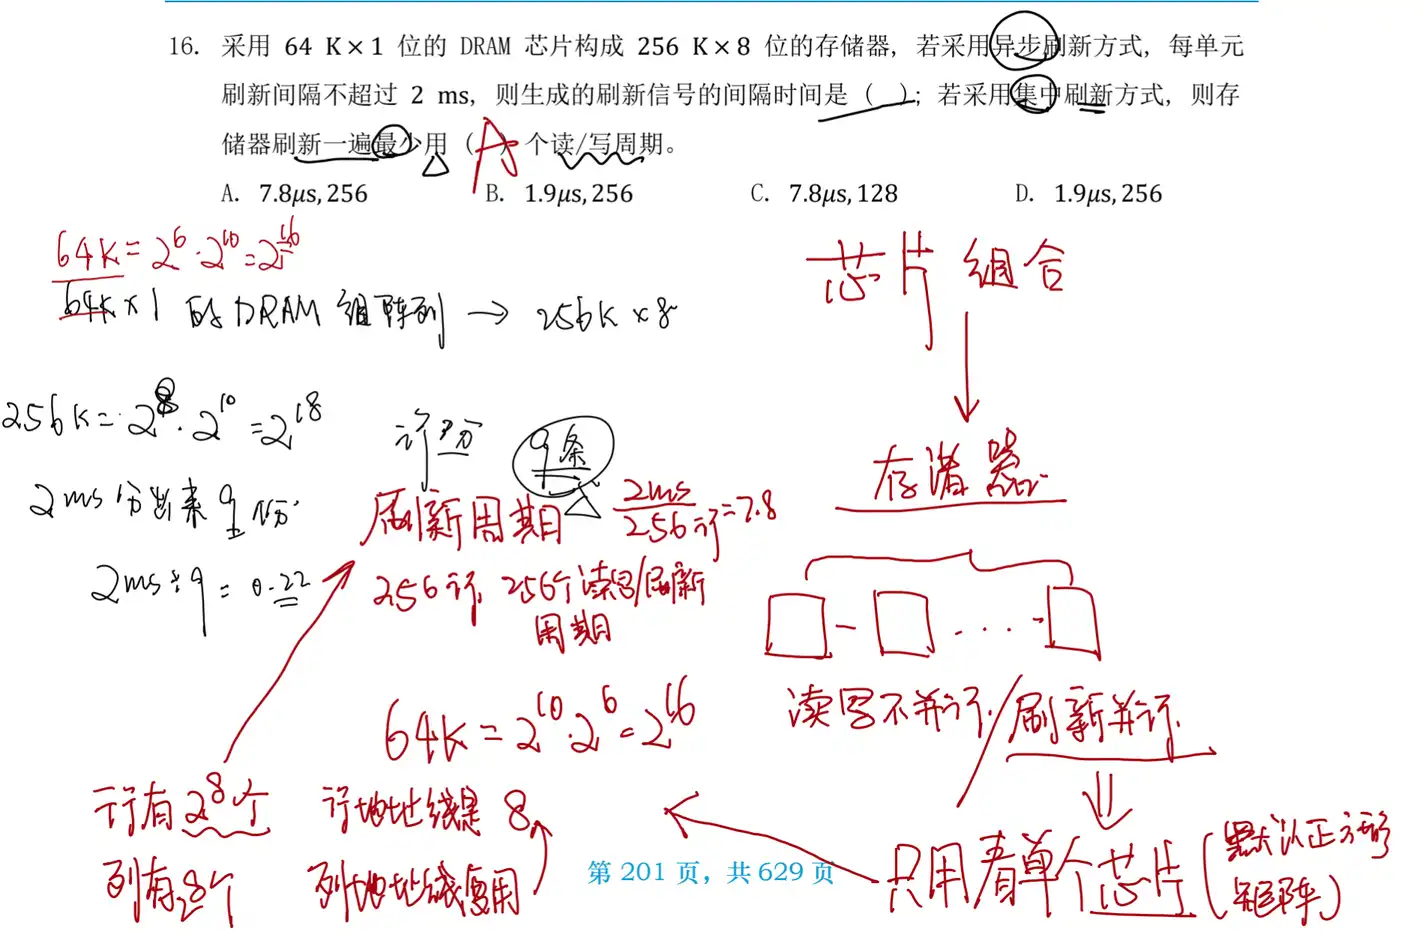 16. 采用 64 K×1 位的 DRAM 芯片构成 256 K×8 位的存储器，若采用异步刷新方式，每单元
刷新间隔不超过 2 ms，则生成的刷新信号的间隔时间是（ ）；若采用集中刷新方式，则存
储器刷新一遍最少用（ A ）个读/写周期。
A. 7.8μs,256 B. 1.9μs,256 C. 7.8μs,128 D. 1.9μs,256
64K=2^6·2^10=2^16
64K×1 的DRAM 组阵列 → 256K×8
芯片 组合
256K=2^8·2^10=2^18
行 9条
存储器
2ms 分出来 9份
刷新周期 2ms/256行=7.8
2ms÷9=0.22
256行 256个读写/刷新
周期
读写不并行/刷新并行
64K=2^10·2^6=2^16
行有2^8个 行地址线是 8
只用看单个芯片(默认正方形
矩阵)
列有2^8个 列地址线复用
第 201 页，共 629 页